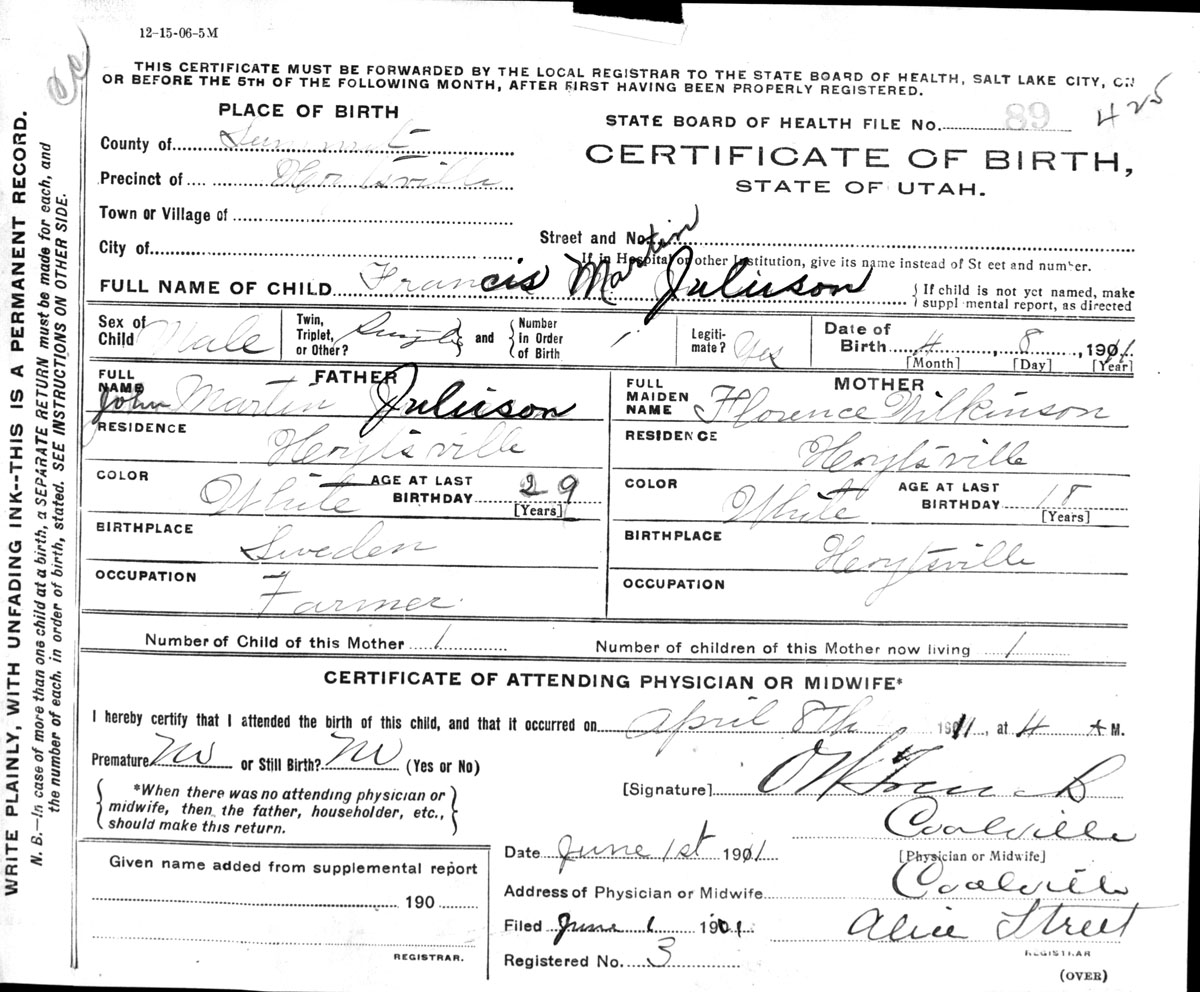 12-15-06-5M
THIS CERTIFICATE MUST BE FORWARDED BY THE LOCAL REGISTRAR TO THE STATE BOARD OF HEALTH, SALT LAKE CITY, ON
OR BEFORE THE 5TH OF THE FOLLOWING MONTH, AFTER FIRST HAVING BEEN PROPERLY REGISTERED.
WRITE PLAINLY, WITH UNFADING INK--THIS IS A PERMANENT RECORD.
N. B.—In case of more than one child at a birth, a SEPARATE RETURN must be made for each, and
the number of each, in order of birth, stated. SEE INSTRUCTIONS ON OTHER SIDE.
PLACE OF BIRTH
STATE BOARD OF HEALTH FILE No. 89 425
County of Summit
CERTIFICATE OF BIRTH,
Precinct of Hoytsville
STATE OF UTAH.
Town or Village of
City of
Street and No.
If in Hospital or other Institution, give its name instead of Street and number.
FULL NAME OF CHILD Francis Martin Juliuson
{If child is not yet named, make
supplemental report, as directed
Sex of Child Male
Twin, Triplet, or Other? Single
and
Number in Order of Birth 1
Legitimate? Yes
Date of Birth 4, 8, 1911
[Month] [Day] [Year]
FATHER
FULL NAME John Martin Juliuson
RESIDENCE Hoytsville
COLOR White
AGE AT LAST BIRTHDAY 29
[Years]
BIRTHPLACE Sweden
OCCUPATION Farmer
MOTHER
FULL MAIDEN NAME Florence Wilkinson
RESIDENCE Hoytsville
COLOR White
AGE AT LAST BIRTHDAY 18
[Years]
BIRTHPLACE Hoytsville
OCCUPATION
Number of Child of this Mother 1
Number of children of this Mother now living 1
CERTIFICATE OF ATTENDING PHYSICIAN OR MIDWIFE*
I hereby certify that I attended the birth of this child, and that it occurred on April 8th 1911, at 4 A M.
Premature No or Still Birth? No (Yes or No)
*When there was no attending physician or
midwife, then the father, householder, etc.,
should make this return.
[Signature]
Coalville
[Physician or Midwife]
Date June 1st 1911
Address of Physician or Midwife Coalville
Filed June 1 1911
Alice Street
REGISTRAR
Registered No. 3
(OVER)
Given name added from supplemental report
190
REGISTRAR.